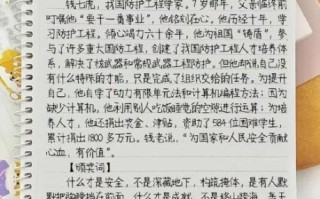 钱七虎,我国防护工程学家,7岁那年,父亲临终前
叮嘱他"要干一番事业",他铭刻在心,他历经十年,学
习防护工程,倾心竭力六十余年,他为祖国"铸盾",参
与了许多重大国防工程,创建了我国防护工程人才培养体
系,解决了核武器和常规武器工程防护,但他却说自己没
有什么特殊的才能,只是完成了组织交给的任务,为提升
自己,他自学了动力有限单元法和计算机编程方法;因为
缺少计算机,他利用别人吃饭睡觉的空隙进行运算;为培
养人才,他还捐出奖金、津贴,资助了584位困难学生,
累计捐出1800多万元。钱老说,"为国家和人民安全贡献
心血,有价值"。
【颁奖词】
什么才是安全,不是深藏地下,构筑掩体,是有人默
默把胸膛挡在前面 什么才是成就,不是移山跨海